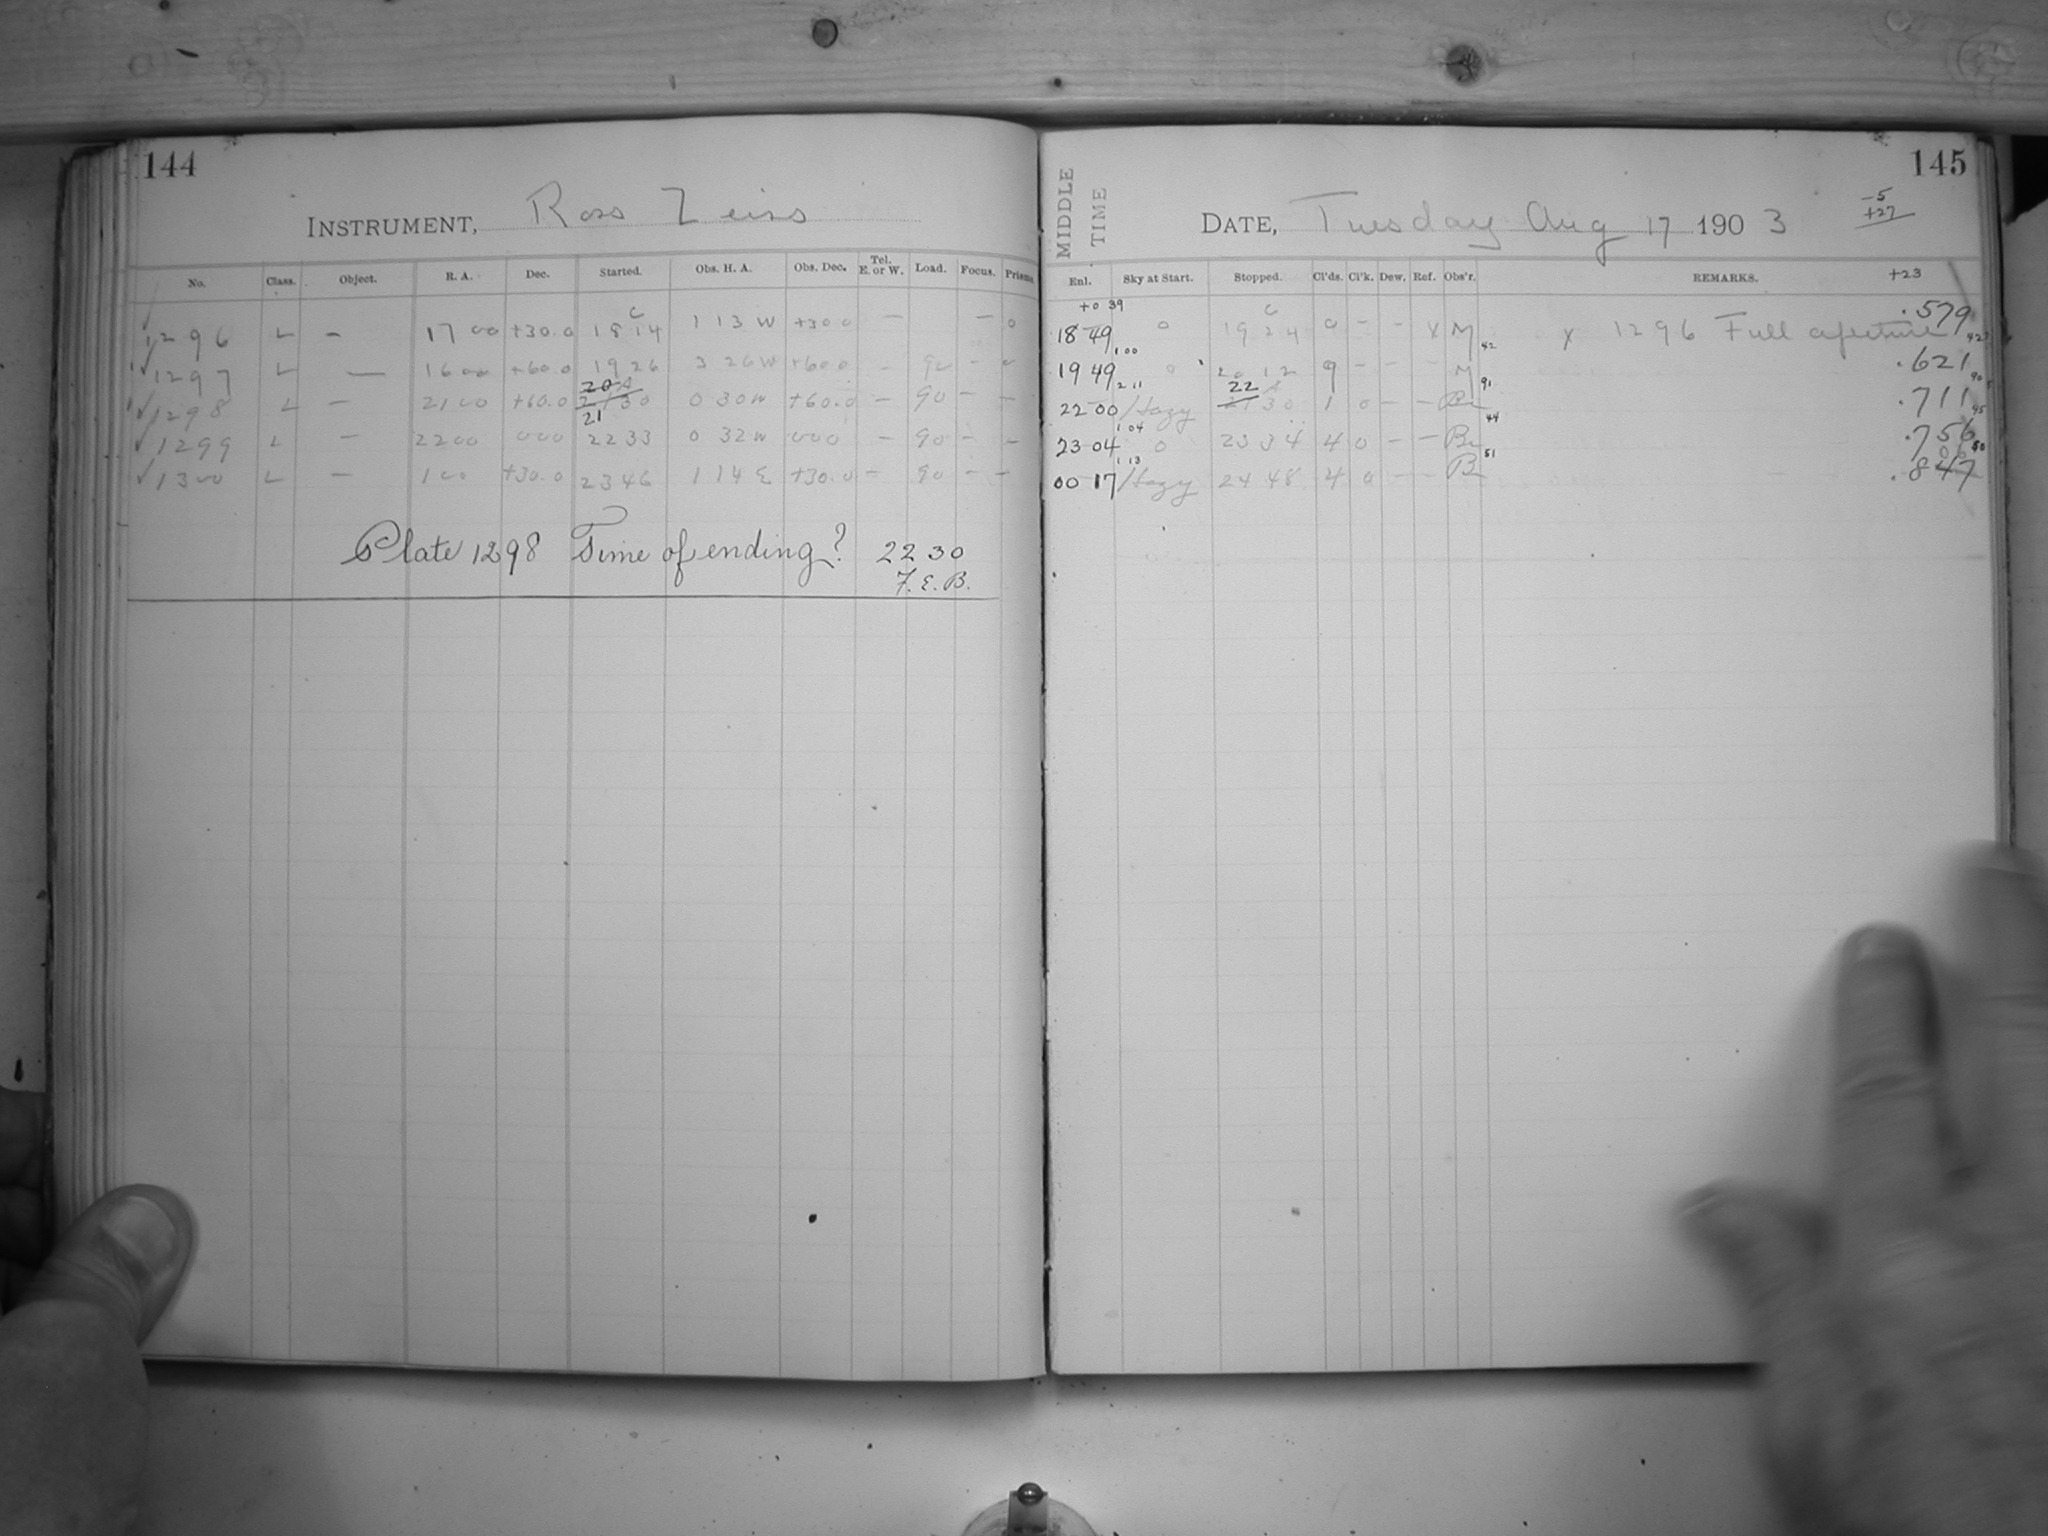 144
INSTRUMENT, Ross Zeiss
No. Class. Object. R. A. Dec. Started. Obs. H. A. Obs. Dec. Tel. E. or W. Load. Focus. Prisms
✓ 1296 L – 17 00 +30.0 18 14 1 13 W +30 0 – – 0
✓ 1297 L — 16 00 +60.0 19 26 3 26 W +60 0 – 90 –
✓ 1298 L – 21 00 +60.0 21 30 0 30 W +60.0 – 90 – –
21
✓ 1299 L – 22 00 0 00 22 33 0 32 W 0 00 – 90 – –
✓ 1300 L – 1 00 +30.0 23 46 1 14 E +30.0 – 90 – –
Plate 1298 Time of ending? 22 30
F. E. B.
145
MIDDLE TIME
DATE, Tuesday Aug 17 1903
-5
+27
Enl. Sky at Start. Stopped. Cl'ds. Cl'k. Dew. Ref. Obs'r. REMARKS. +23
+0 39
18 49 0 19 24 0 – – X M x 1296 Full aperture .579
1 00 42
19 49 0 20 12 9 – – M .621
2 11 22 91
22 00 Hazy 21 30 1 0 – – Br .711
1 04 44
23 04 0 23 34 4 0 – – Br .756
1 13 51
00 17 Hazy 24 48 4 0 – – B .847